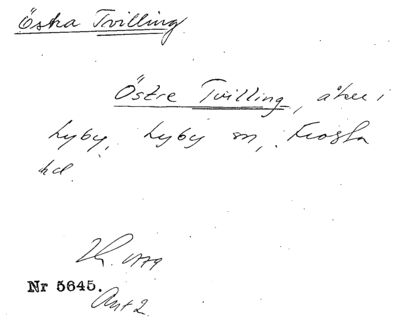 Östra Tvilling
Östre Tvilling, åker i
Lyby, Lyby sn, Frosta
hd.
1779
Nr 5645.
Akt 2